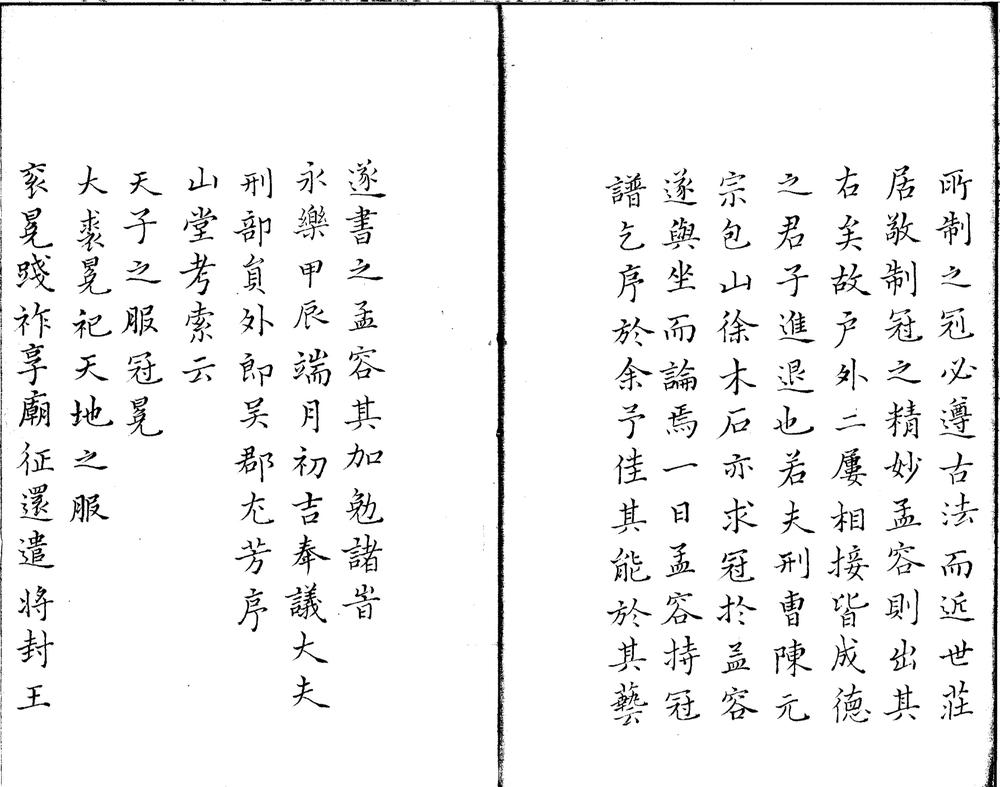 所制之冠必遵古法而近世莊
居敬制冠之精妙孟容則出其
右矣故户外二屨相接皆成德
之君子進退也若夫刑曹陳元
宗包山徐木石亦求冠扵孟容
遂與坐而論焉一日孟容持冠
譜乞序於余予佳其能於其藝
遂書之孟容其加勉諸旹
永樂甲辰端月初吉奉議大夫
刑部貟外郎吴郡尤芳序
山堂考索云
天子之服冠冕
大裘冕祀天地之服
衮冕踐祚享廟征還遣将封王